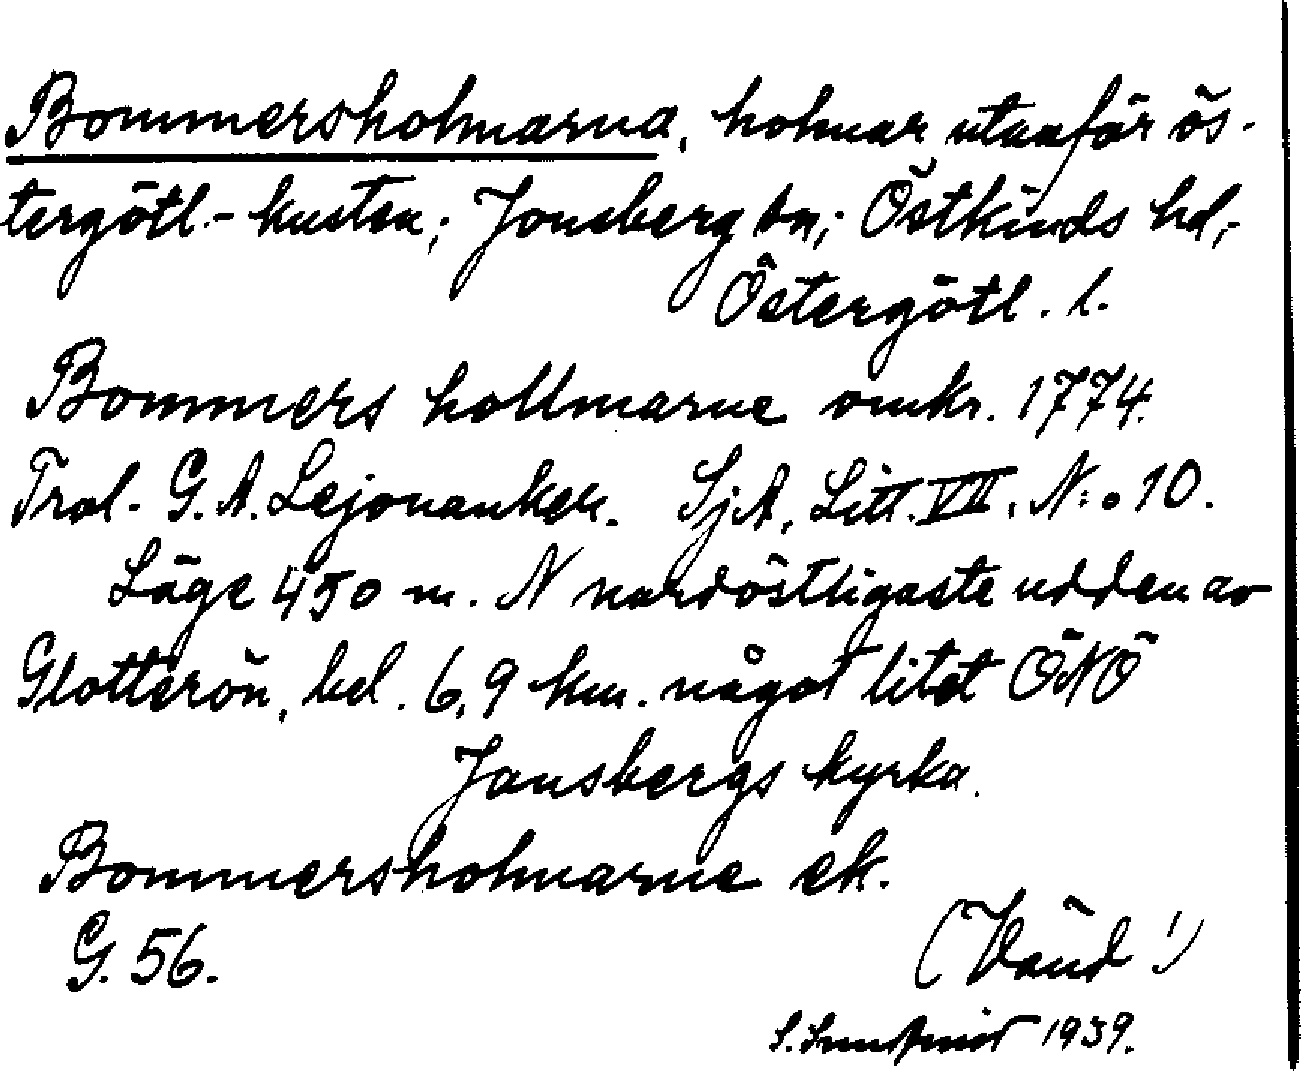 Bommersholmarna, holmar utanför ös-
tergötl.-kusten; Jonsberg sn; Östkinds hd,
Östergötl. l.
Bommers hollmarne omkr. 1774.
Trol. G. A. Lejonanker. SjA, Litt. VII, N:o 10.
Läge 450 m. N nordöstligaste udden av
Glotterön, bel. 6,9 km. något litet ÖNÖ
Jonsbergs kyrka.
Bommersholmarne ek.
G. 56.
(Vänd!)
S. 1939.